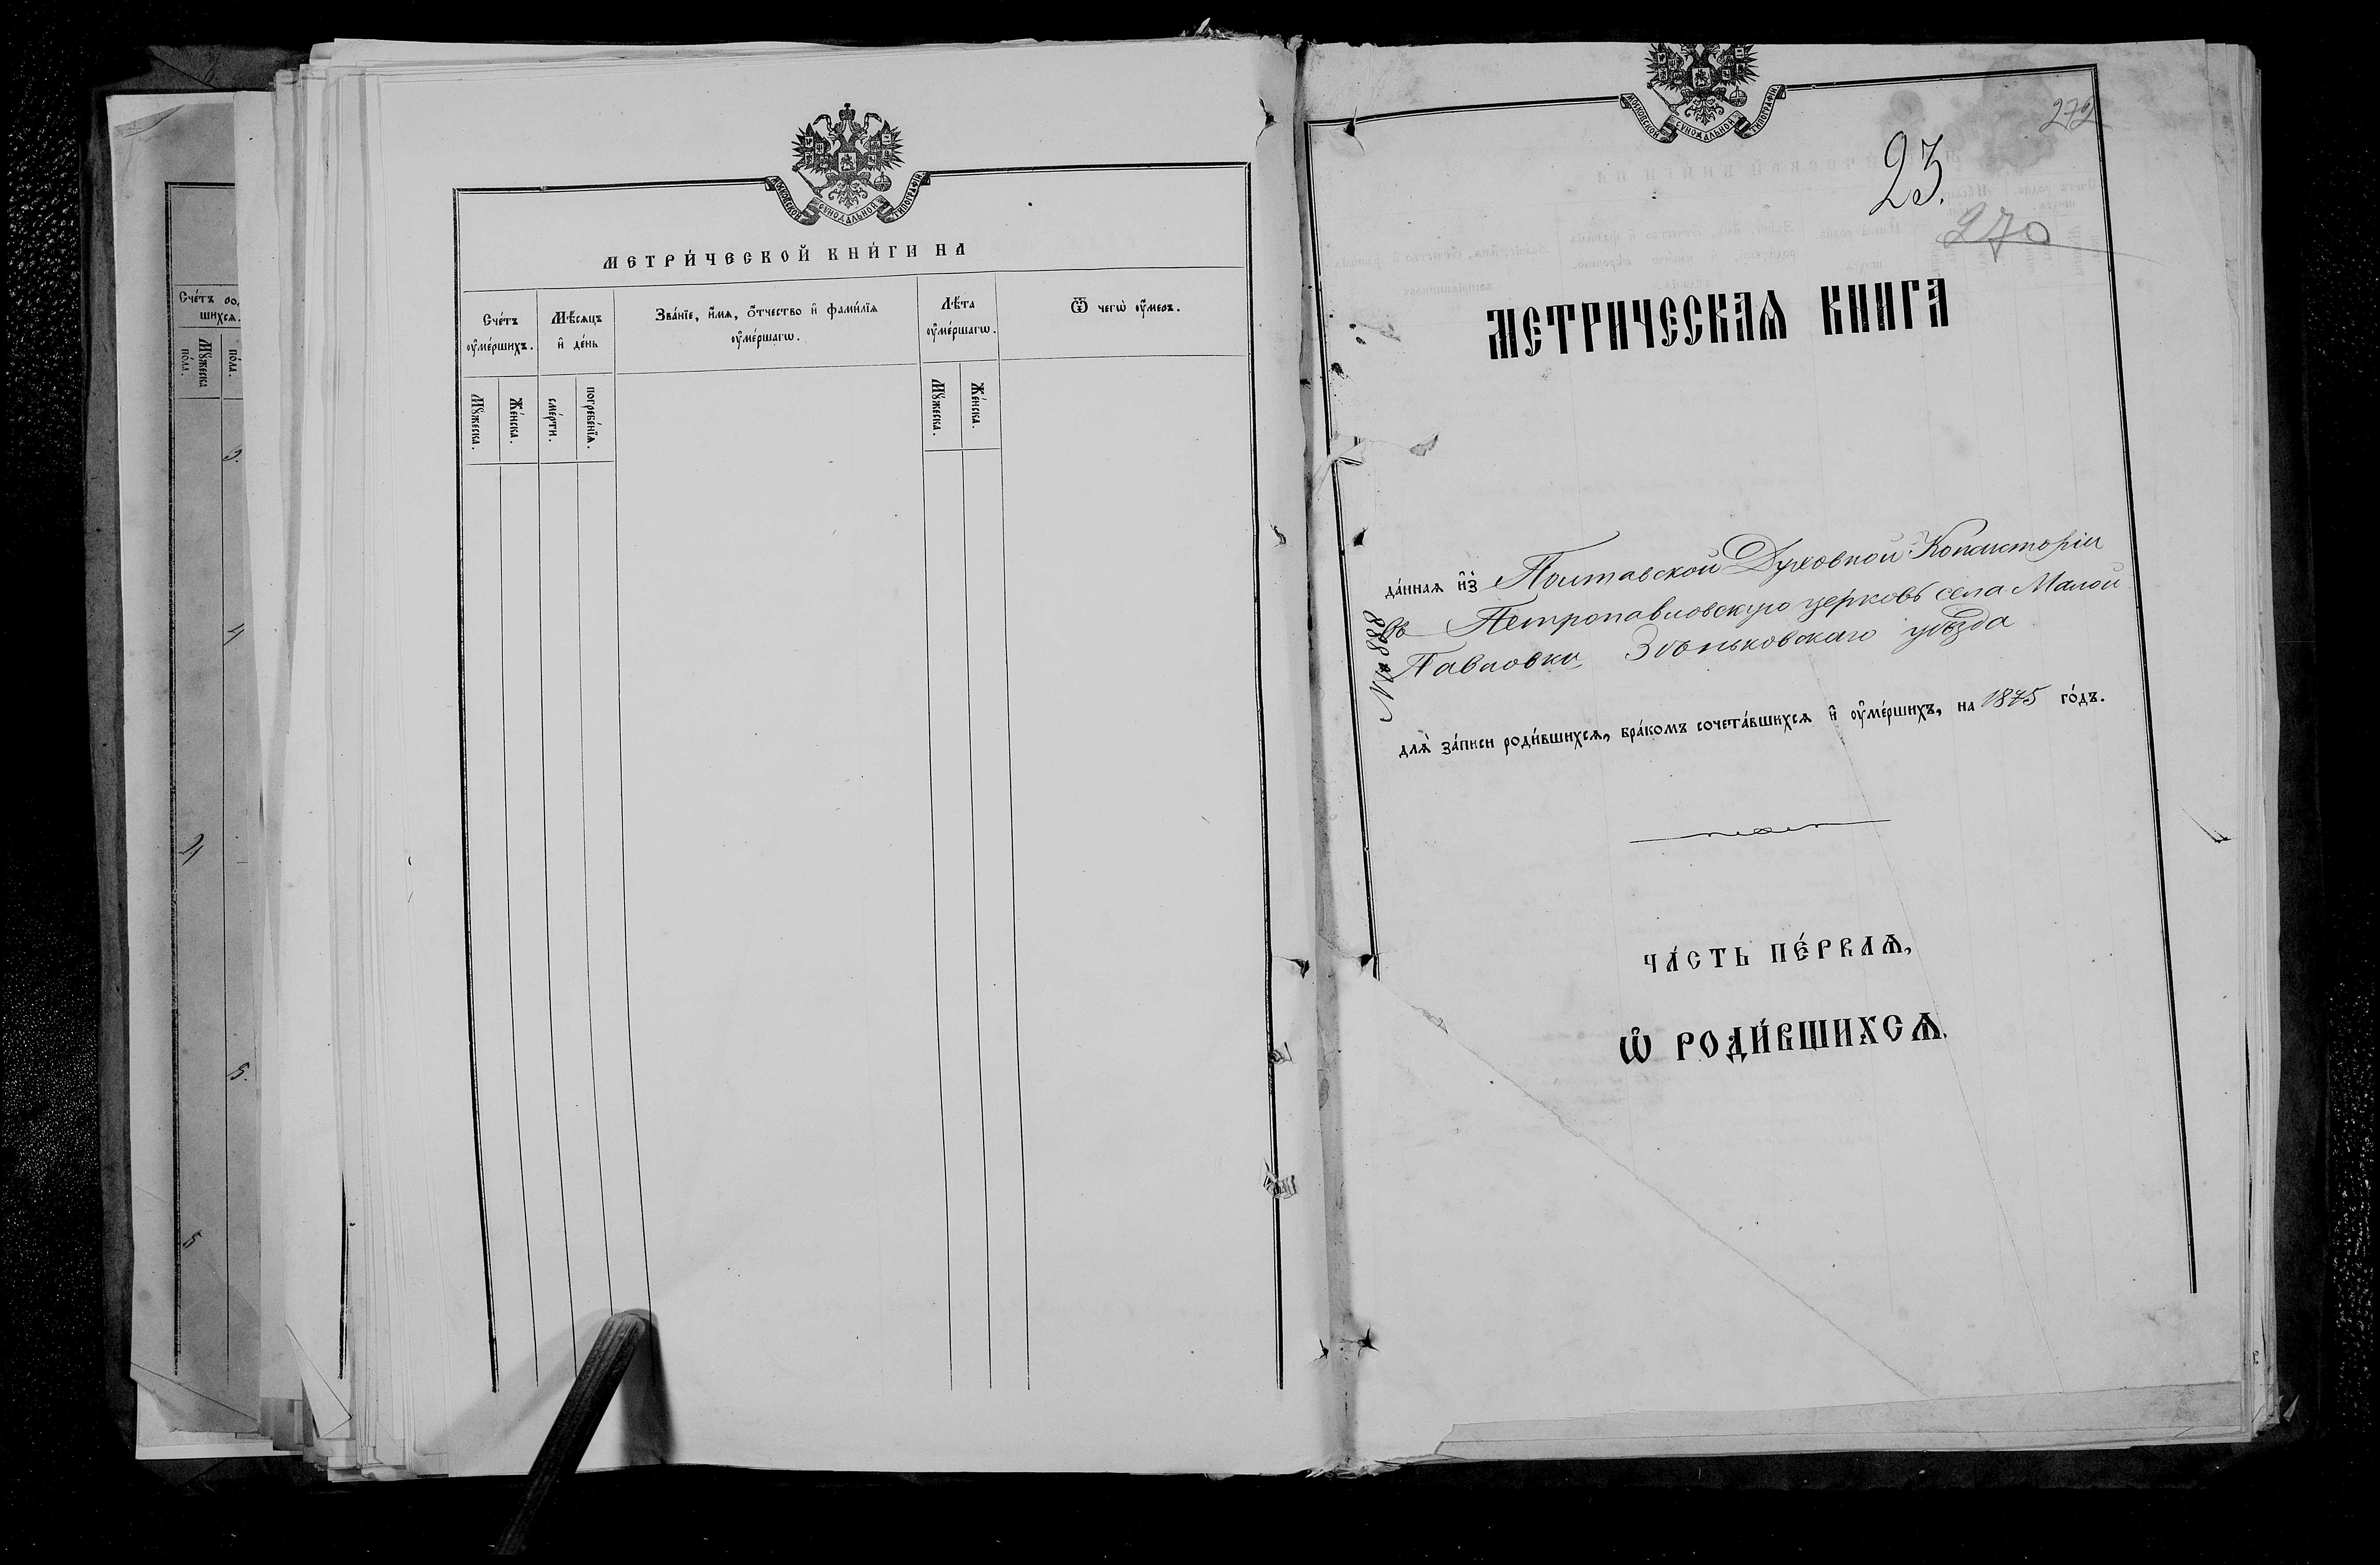 Сче́тъ ро
шихсѧ.
Мꙋжеска
по́ла.
по́ла.
3.
4
2
5.
5
МОСКОВСКОЙ СѴНОДАЛЬНОЙ ТИПОГРАФІИ
МЕТРИ́ЧЕСКОЙ КНИ́ГИ НА
Сче́тъ
ᲂу҆ме́ршихъ.
Мѣ́сѧцъ
и҆ де́нь
Зва́нїе, и҆́мѧ, ѻ҆́тчество и҆ фами́лїѧ
ᲂу҆ме́ршагѡ.
Лѣ̑та
ᲂу҆ме́ршагѡ.
Ѿ чегѡ̀ ᲂу҆́меръ.
Мꙋ́жеска.
Же́нска.
сме́рти.
погребе́нїѧ.
Мꙋ́жеска.
Же́нска.
МОСКОВСКОЙ СѴНОДАЛЬНОЙ ТИПОГРАФІИ
272
23.
270
МЕТРИЧЕСКАѦ КНИГА
да́ннаѧ и҆з̾ Полтавской Духовной Консисторіи
въ Петропавловскую церковь села Малой
Павловки Зѣньковскаго уѣзда
№ 888
длѧ̀ за́писи роди́вшихсѧ, бра́комъ сочета́вшихсѧ и҆ ᲂу҆ме́ршихъ, на 1875 го́дъ.
ЧА́СТЬ ПЕ́РВАѦ,
Ѡ҆ РОДИ́ВШИХСѦ.